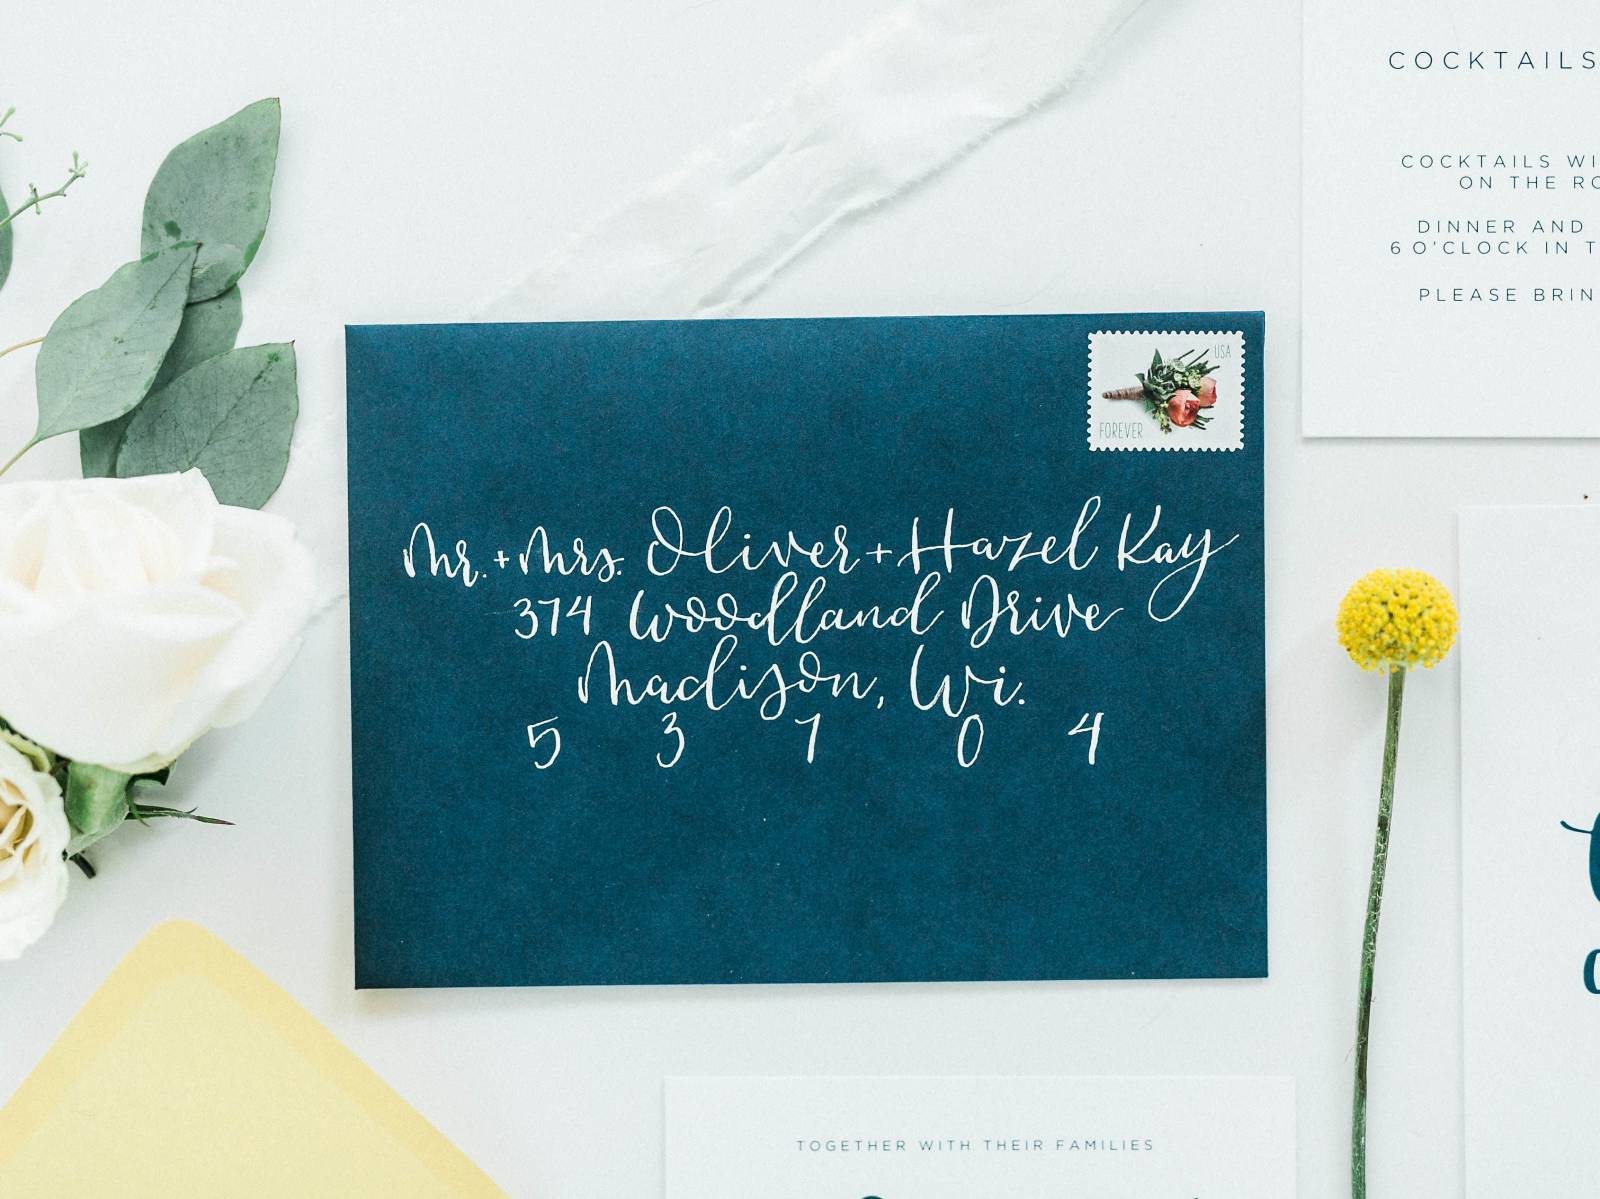 COCKTAILS
COCKTAILS
ON THE
DINNER AND
6 O'CLOCK IN
PLEASE
USA
FOREVER
Mr. + Mrs. Oliver + Hazel Kay
374 Woodland Drive
Madison, Wi.
5 3 7 0 4
TOGETHER WITH THEIR FAMILIES